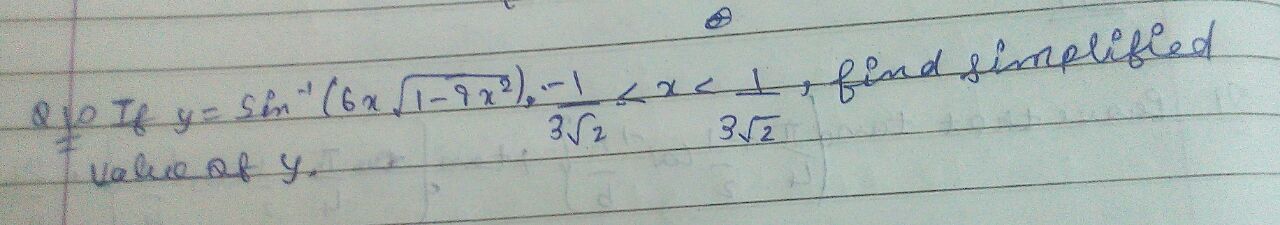 Q10 If y = Sin⁻¹(6x√(1-9x²)), -1/3√2 < x < 1/3√2, find simplified
value of y.